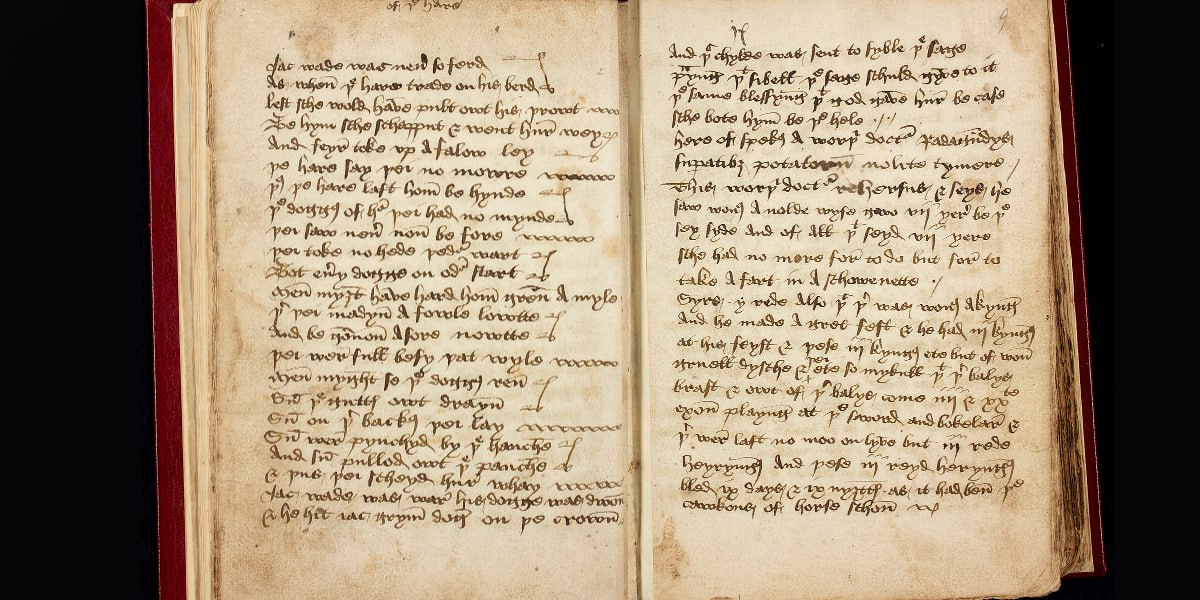 of þe hare
Jac wade was nevr so ferd
As when þe hare trade on his berd
lest sche wold have pullt owt his
Be hym sche schepput & went hur wey
And feyr toke up A falow ley
þe hare say þer no morre
þus þe hare last hom be hynde
þe doggus of hr þer had no mynde
þei saw nevr non be fore
þei toke no hede þedr wart
Bot evry dogge on odr start
Men myȝt have hard hom gren A myle
þr þei madyn A fowle lowtte
And be gonnon Afore nowtte
þei wer full besy þat wyle
Men myght se þe doggus ren
Sum þe guttus owt drayn
Sum on þr backus þei lay
Sum wer pynchyd by þe hanche
And sum pullod owt þe panche
& þus þei scheyd hur whay
Jac wade was war his dogge was
& he hit jac grym dog on þe crown
9
And þt chylde was sent to syble þe sage
þt sibell þe sage schuld gyve to it
þe same blessyng þt god gave hur be case
sche bote hym be þe hele
here of spekus A worþi doctr
potatorum nolite tymere
This worþi doctr rehersus & seys he
saw wons A nolde wyfe gwo vii yere be þe
sey syde And of All þt seyd vii yere
sche had no more for to do but for to
take A fart in A schowenette
Syrs y rede Also þt þr was wons A kyng
And he made A gret fest & he had iii kyngus
at his feyst & þese iii kyngus ete but of won
gruell dysche & þei ete so mykull þt þr balys
brast & owt of þr balys come iiii & xxte
oxon playing at þe sword and bokelar &
þr wer last no moo on lyve but iii rede
heyryngus And þese iii reyd heryngus
bled ix days & ix nyȝttus as it had ben þe
cawkons of horse schon